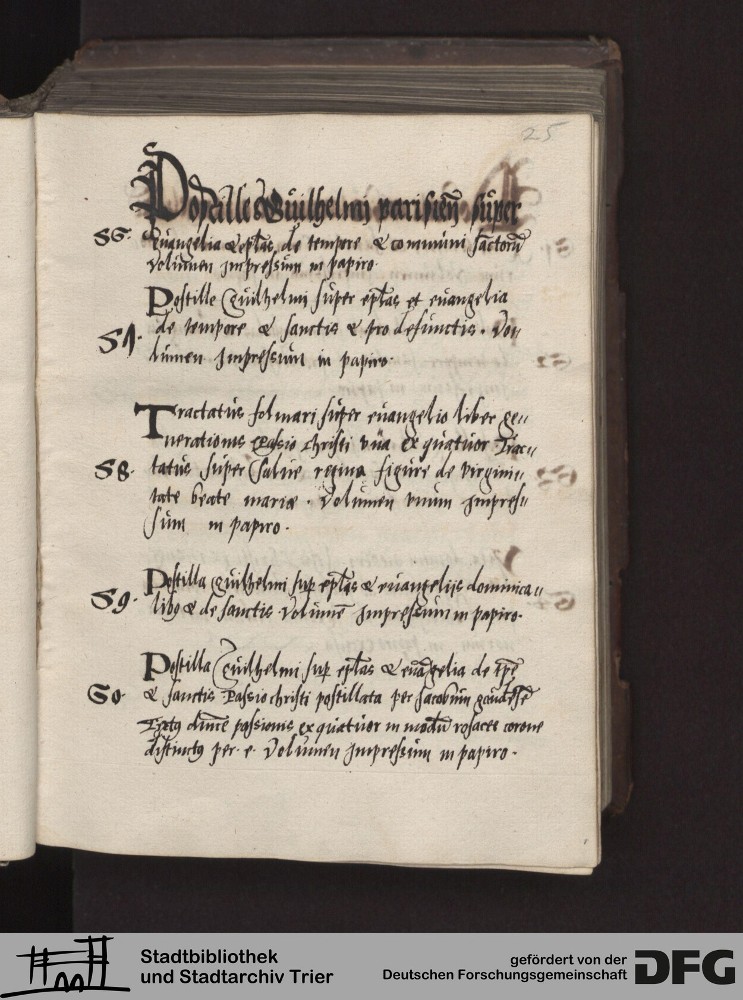 25
Postille Guilhelmi parisieñ super
S6. Euangelia & epl̃as de tempore & communi sanctorũ
Volumen impressum in papiro
Postille Guilhelmi super epl̃as et euangelia
S7. de tempore & sanctis & pro defunctis. Vo„
lumen Impressum in papiro
Tractatus super euangelio liber ge„
nerationis passio christi vna ex quatuor Trac„
S8. tatus super Salue regina figure de virgini„
tate beate marie. Volumen vnum impres„
sum in papiro.
Postilla Guilhelmi sup epl̃as & euangelijs dominica„
S9. libꝫ & de sanctis Volumẽ Impressum in papiro.
Postilla Guilhelmi sup epl̃as & euãgelia de tp̃e
60. & sanctis Passio christi postillata per Jacobum
passionis ex quatuor in modũ rosacee corone
distinctꝰ per. e. Volumen Impressum in papiro.
Stadtbibliothek
und Stadtarchiv Trier
gefördert von der
Deutschen Forschungsgemeinschaft
DFG